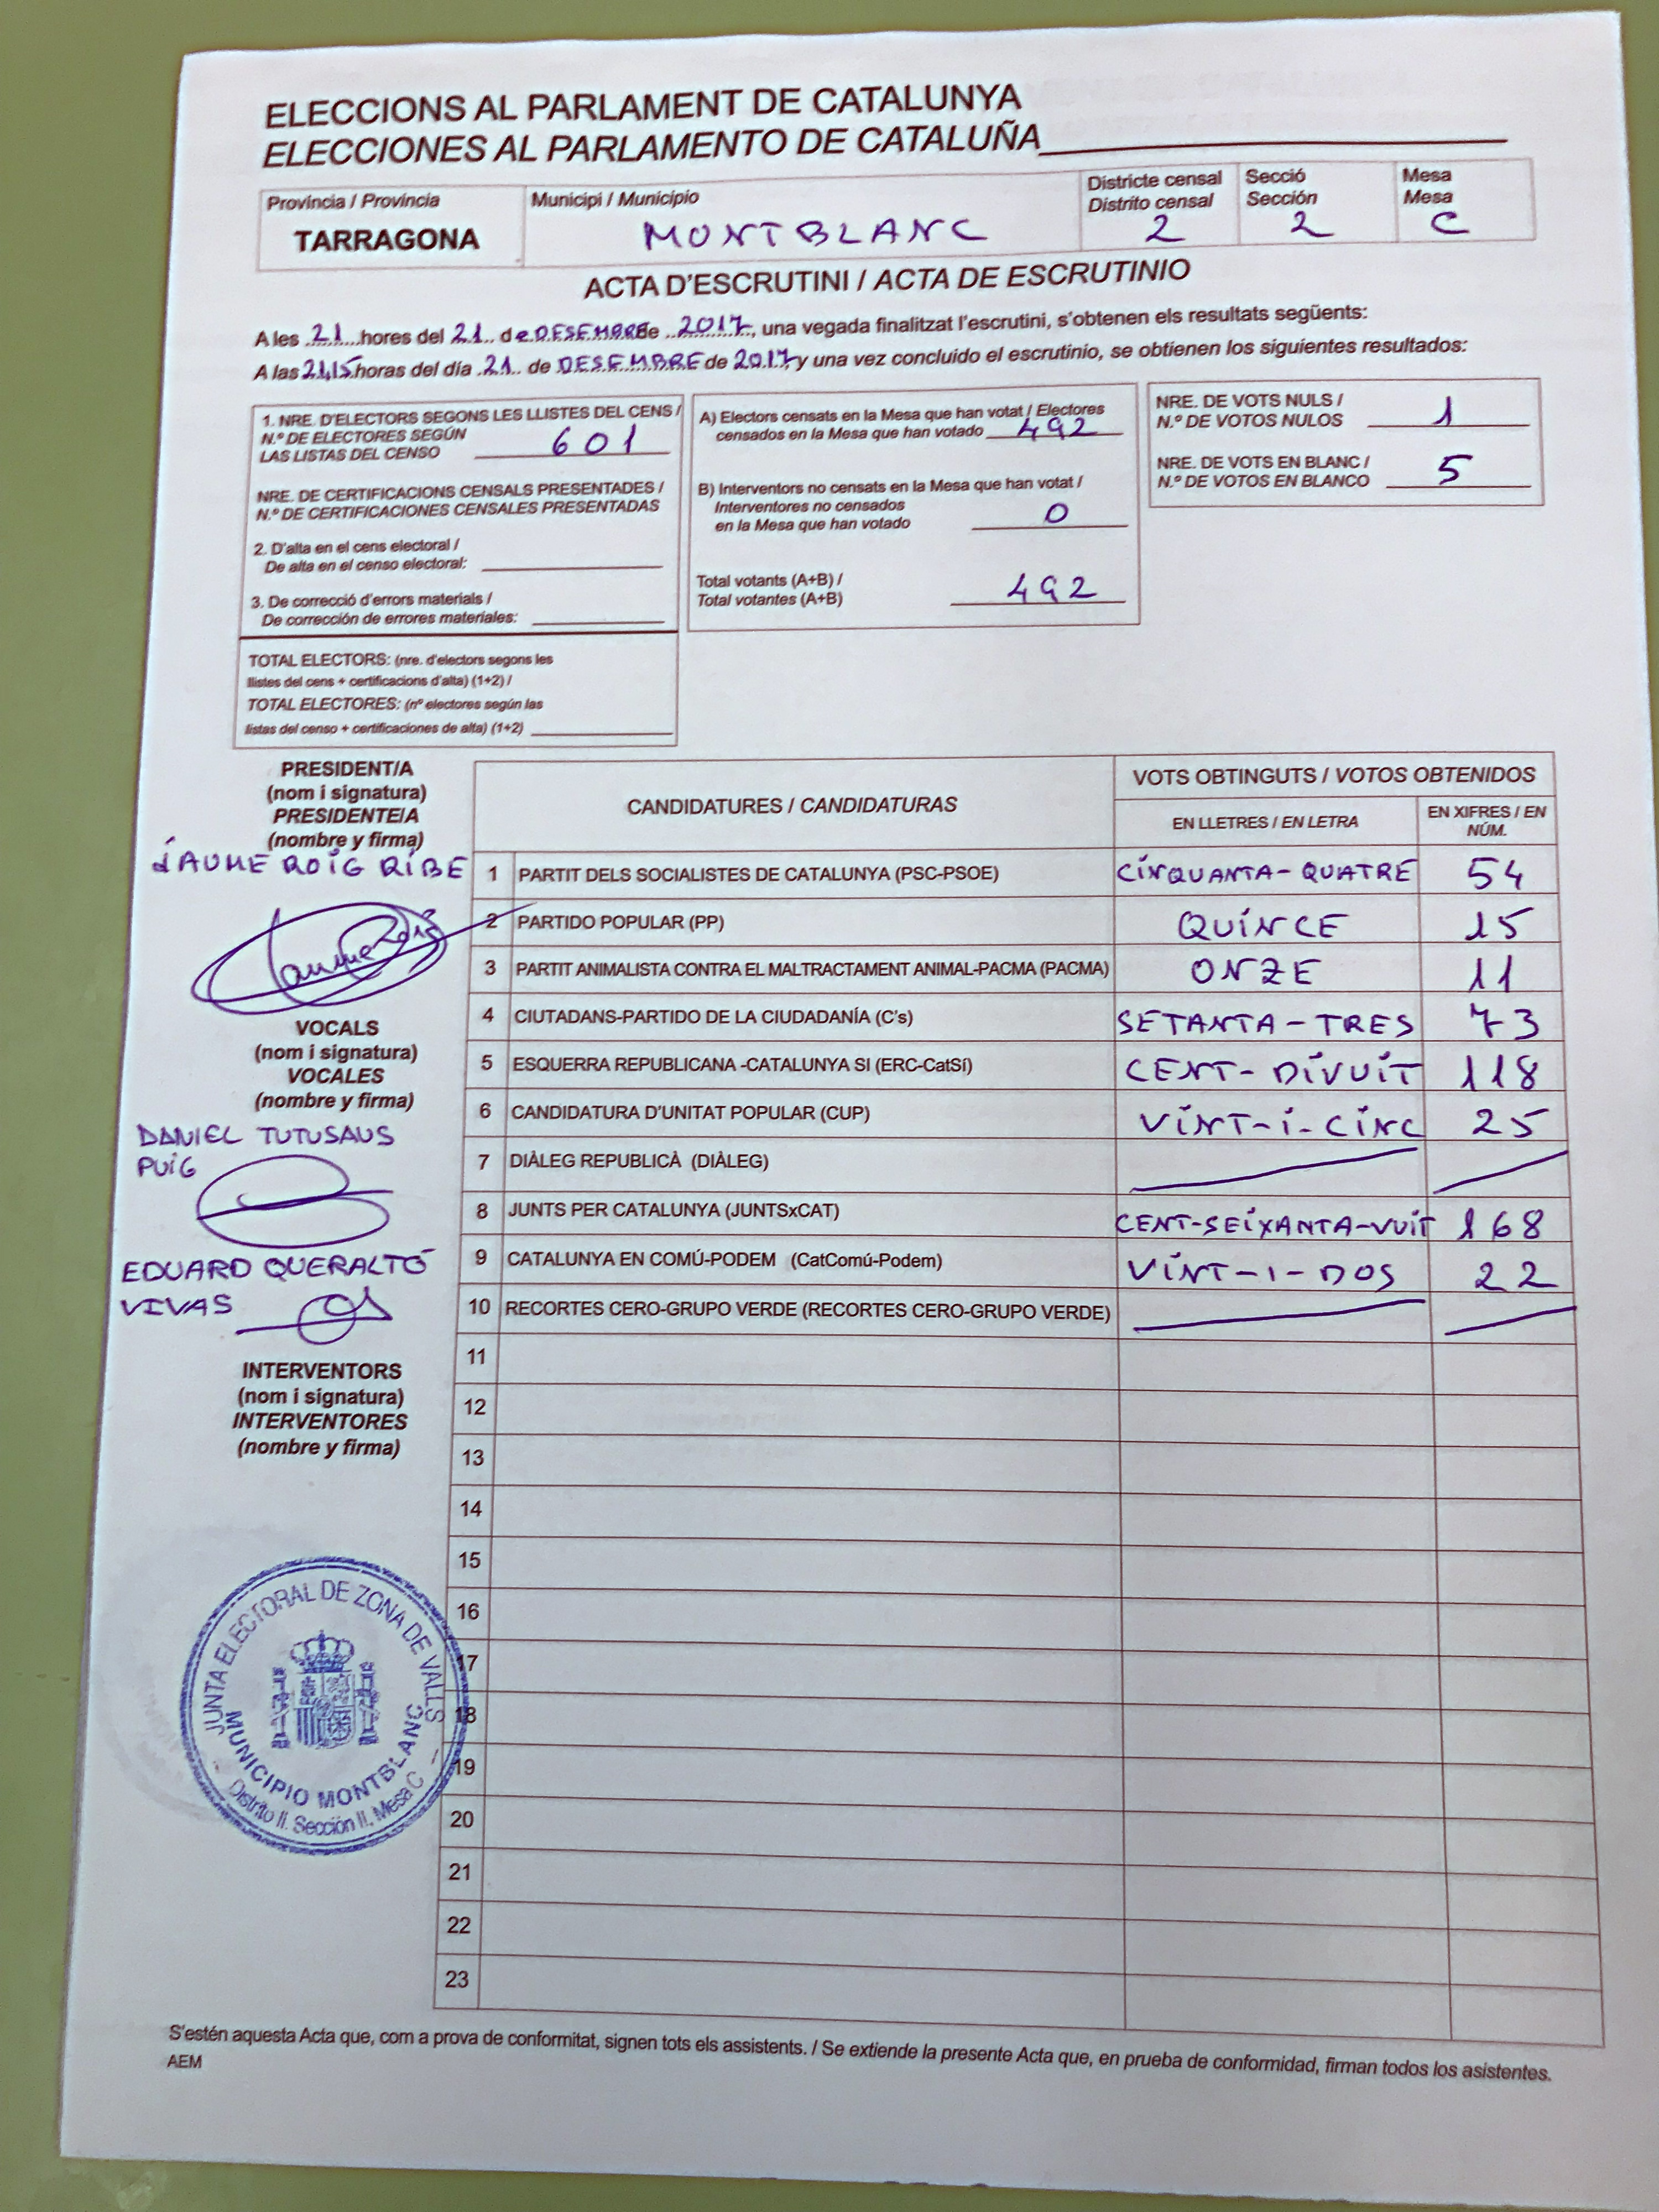 ELECCIONS AL PARLAMENT DE CATALUNYA
ELECCIONES AL PARLAMENTO DE CATALUÑA
Província / Provincia
TARRAGONA
Municipi / Municipio
MONTBLANC
Districte censal
Distrito censal
2
Secció
Sección
2
Mesa
Mesa
C
ACTA D'ESCRUTINI / ACTA DE ESCRUTINIO
A les 21 hores del 21 de DESEMBRE de 2017, una vegada finalitzat l'escrutini, s'obtenen els resultats següents:
A las 21,15 horas del día 21 de DESEMBRE de 2017 y una vez concluido el escrutinio, se obtienen los siguientes resultados:
1. NRE. D'ELECTORS SEGONS LES LLISTES DEL CENS /
N.º DE ELECTORES SEGÚN
LAS LISTAS DEL CENSO 601
NRE. DE CERTIFICACIONS CENSALS PRESENTADES /
N.º DE CERTIFICACIONES CENSALES PRESENTADAS
2. D'alta en el cens electoral /
De alta en el censo electoral:
3. De correcció d'errors materials /
De corrección de errores materiales:
TOTAL ELECTORS: (nre. d'electors segons les
llistes del cens + certificacions d'alta) (1+2) /
TOTAL ELECTORES: (nº electores según las
listas del censo + certificaciones de alta) (1+2)
A) Electors censats en la Mesa que han votat / Electores
censados en la Mesa que han votado 492
B) Interventors no censats en la Mesa que han votat /
Interventores no censados
en la Mesa que han votado 0
Total votants (A+B) /
Total votantes (A+B) 492
NRE. DE VOTS NULS /
N.º DE VOTOS NULOS 1
NRE. DE VOTS EN BLANC /
N.º DE VOTOS EN BLANCO 5
PRESIDENT/A
(nom i signatura)
PRESIDENTE/A
(nombre y firma)
JAUME ROIG RIBE
Jaume Roig
VOCALS
(nom i signatura)
VOCALES
(nombre y firma)
DANIEL TUTUSAUS
PUIG
EDUARD QUERALTÓ
VIVAS
INTERVENTORS
(nom i signatura)
INTERVENTORES
(nombre y firma)
CANDIDATURES / CANDIDATURAS
VOTS OBTINGUTS / VOTOS OBTENIDOS
EN LLETRES / EN LETRA
EN XIFRES / EN
NÚM.
1 PARTIT DELS SOCIALISTES DE CATALUNYA (PSC-PSOE) CINQUANTA-QUATRE 54
2 PARTIDO POPULAR (PP) QUINCE 15
3 PARTIT ANIMALISTA CONTRA EL MALTRACTAMENT ANIMAL-PACMA (PACMA) ONZE 11
4 CIUTADANS-PARTIDO DE LA CIUDADANÍA (C's) SETANTA-TRES 73
5 ESQUERRA REPUBLICANA -CATALUNYA SI (ERC-CatSí) CENT-DIVUIT 118
6 CANDIDATURA D'UNITAT POPULAR (CUP) VINT-I-CINC 25
7 DIÀLEG REPUBLICÀ (DIÀLEG)
8 JUNTS PER CATALUNYA (JUNTSxCAT) CENT-SEIXANTA-VUIT 168
9 CATALUNYA EN COMÚ-PODEM (CatComú-Podem) VINT-I-DOS 22
10 RECORTES CERO-GRUPO VERDE (RECORTES CERO-GRUPO VERDE)
11
12
13
14
15
16
17
18
19
20
21
22
23
JUNTA ELECTORAL DE ZONA DE VALLS
MUNICIPIO MONTBLANC
Distrito II. Sección II. Mesa C
S'estén aquesta Acta que, com a prova de conformitat, signen tots els assistents. / Se extiende la presente Acta que, en prueba de conformidad, firman todos los asistentes.
AEM